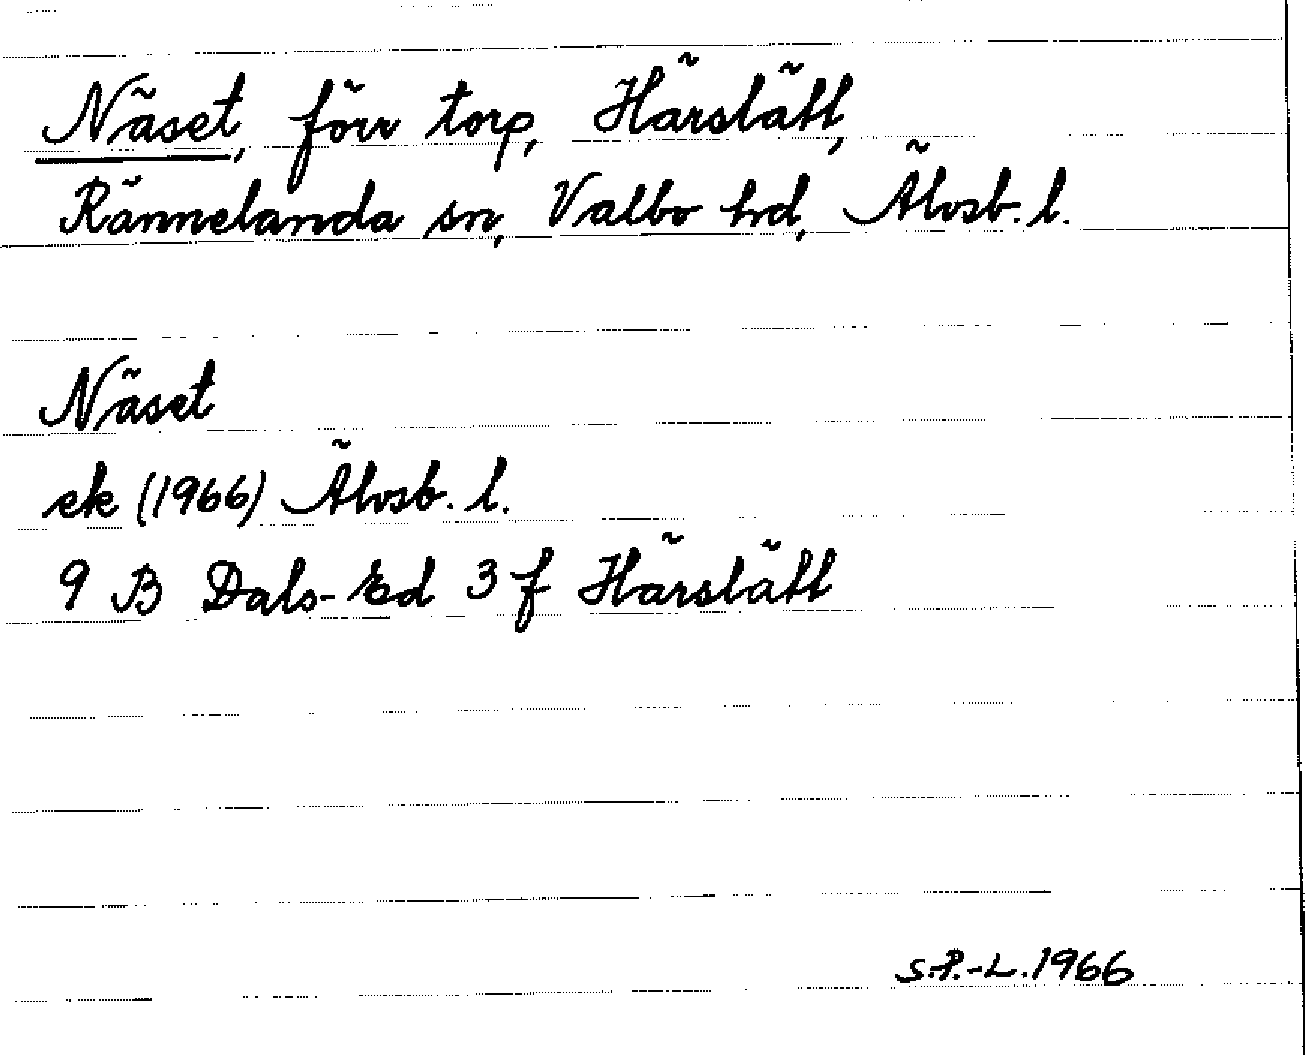 Näset, förr torp, Härslätt,
Rännelanda sn, Valbo hd, Älvsb. l.
Näset
ek (1966) Älvsb. l.
9 B Dals-Ed 3 f Härslätt
S.P.-L. 1966